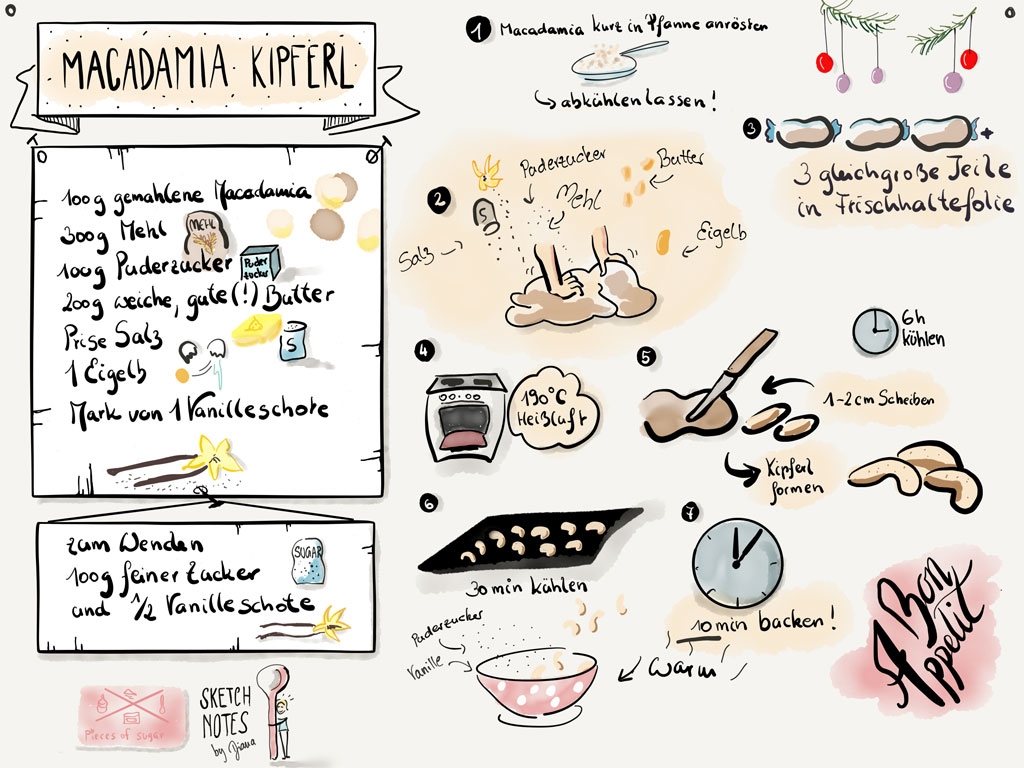 MACADAMIA KIPFERL
100g gemahlene Macadamia
300g Mehl
MEHL
100g Puderzucker
Puder
zucker
200g weiche, gute (!) Butter
Prise Salz
S
1 Eigelb
Mark von 1 Vanilleschote
zum Wenden
100g feiner Zucker
SUGAR
und 1/2 Vanilleschote
Pieces of sugar
SKETCH
NOTES
by Diana
1 Macadamia kurz in Pfanne anrösten
abkühlen lassen!
2
Puderzucker
Butter
Mehl
S
Salz
Eigelb
3
+
3 gleichgroße Teile
in Frischhaltefolie
6h
kühlen
4
190°C
Heißluft
5
1-2cm Scheiben
Kipferl
formen
6
30min kühlen
7
10min backen!
warm
Puderzucker
Vanille
Bon
Appetit